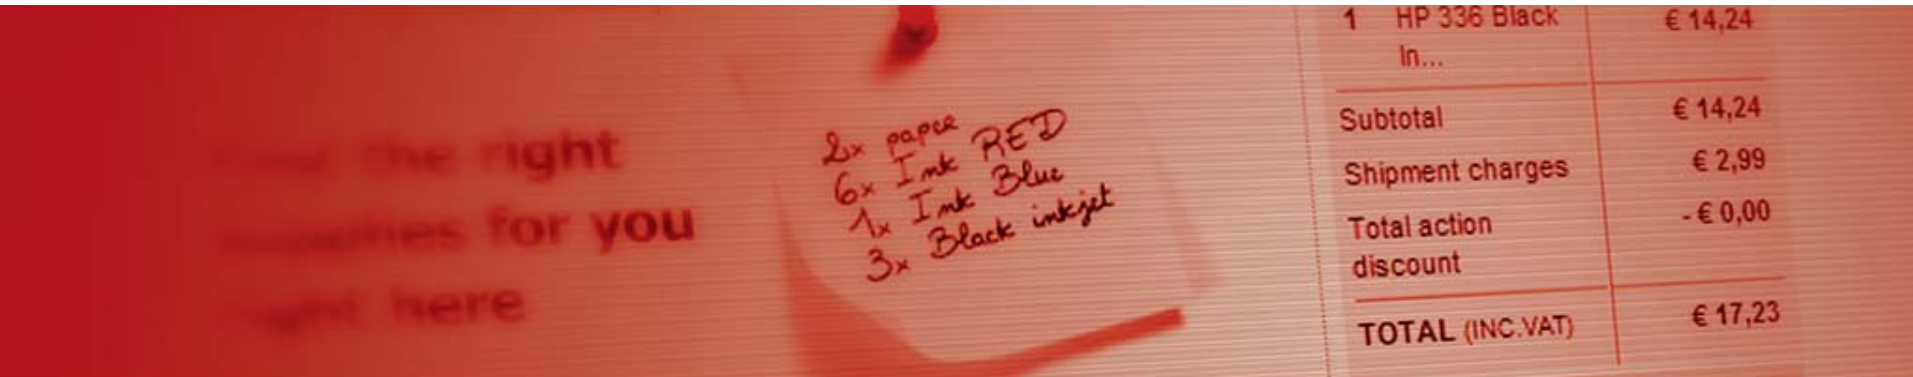 Find the right
supplies for you
right here
2x paper
6x Ink RED
1x Ink Blue
3x Black inkjet
1 HP 336 Black € 14,24
In...
Subtotal € 14,24
Shipment charges € 2,99
Total action - € 0,00
discount
TOTAL (INC.VAT) € 17,23